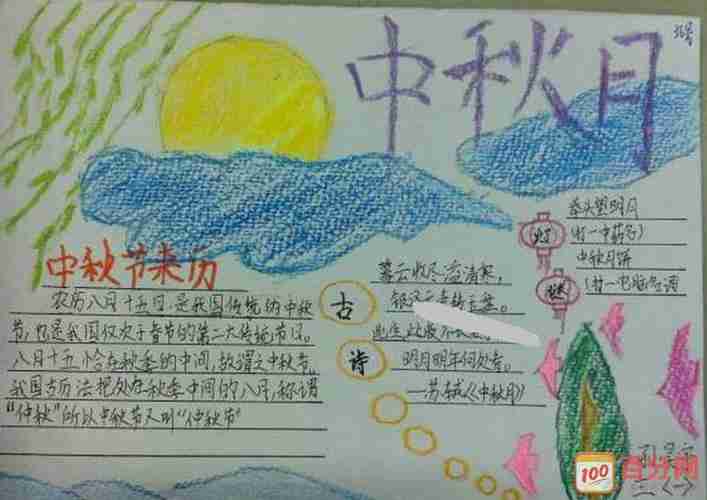 中秋月
中秋节来历
农历八月十五日,是我国传统的中秋
节,也是我国仅次于春节的第二大传统节日。
八月十五恰在秋季的中间,故谓之中秋节。
我国古历法把处在秋季中间的八月,称谓
“仲秋”所以中秋节又叫“仲秋节”
古
诗
暮云收尽溢清寒,
银汉无声转玉盘。
此生此夜不长
明月明年何处看。
—苏轼《中秋月》
灯
谜
举头望明月
(打一中药名)
中秋月饼
(打一电脑名词
100 百分网